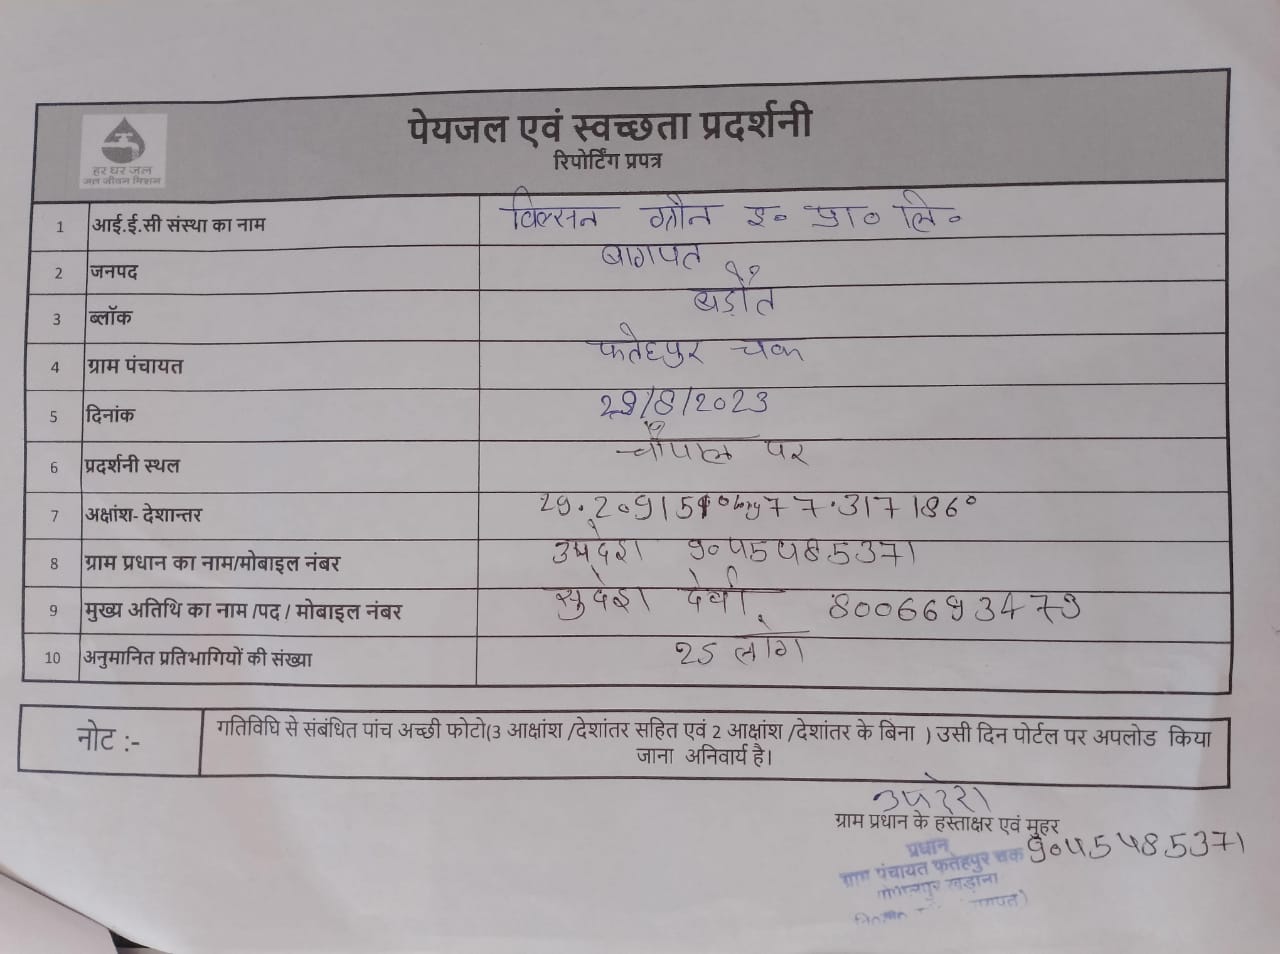 हर घर जल
जल जीवन मिशन
पेयजल एवं स्वच्छता प्रदर्शनी
रिपोर्टिंग प्रपत्र
1 आई.ई.सी संस्था का नाम विल्सन ग्रीन इ० प्रा० लि०
2 जनपद बागपत
3 ब्लॉक बड़ौत
4 ग्राम पंचायत फतेहपुर चक
5 दिनांक 29/8/2023
6 प्रदर्शनी स्थल चौपाल पर
7 अक्षांश- देशान्तर 29.209151° long 77.317186°
8 ग्राम प्रधान का नाम/मोबाइल नंबर उपदेश 9045485371
9 मुख्य अतिथि का नाम /पद / मोबाइल नंबर सुदेश देवी, 8006693473
10 अनुमानित प्रतिभागियों की संख्या 25 लोग
नोट :- गतिविधि से संबंधित पांच अच्छी फोटो(3 आक्षांश /देशांतर सहित एवं 2 आक्षांश /देशांतर के बिना ) उसी दिन पोर्टल पर अपलोड किया
जाना अनिवार्य है।
उपदेश
ग्राम प्रधान के हस्ताक्षर एवं मुहर
9045485371
प्रधान
ग्राम पंचायत फतेहपुर चक